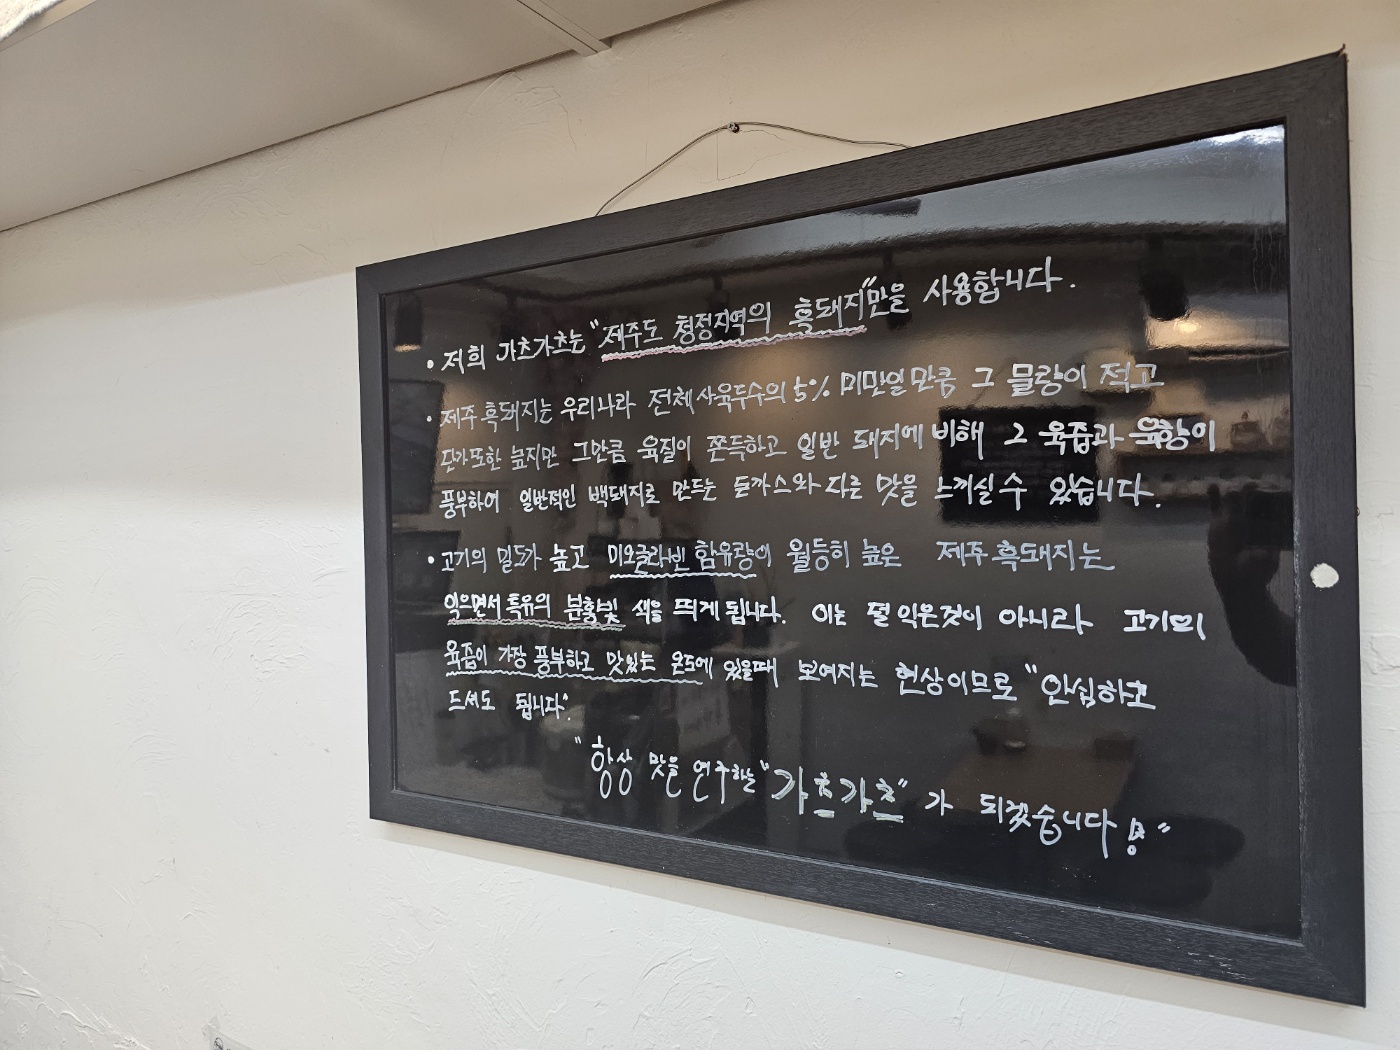 • 저희 가츠가츠는 "제주도 청정지역의 흑돼지"만을 사용합니다.
• 제주흑돼지는 우리나라 전체사육두수의 5% 미만일만큼 그 물량이 적고
단가또한 높지만 그만큼 육질이 쫀득하고 일반 돼지에 비해 그 육즙과 육향이
풍부하여 일반적인 백돼지로 만드는 돈까스와 다른 맛을 느끼실수 있습니다.
• 고기의 밀도가 높고 미오글라빈 함유량이 월등히 높은 제주흑돼지는
익으면서 특유의 분홍빛 색을 띄게 됩니다. 이는 덜 익은것이 아니라 고기의
육즙이 가장 풍부하고 맛있는 온도에 있을때 보여지는 현상이므로 "안심하고
드셔도 됩니다".
"항상 맛을 연구하는 "가츠가츠" 가 되겠습니다!"